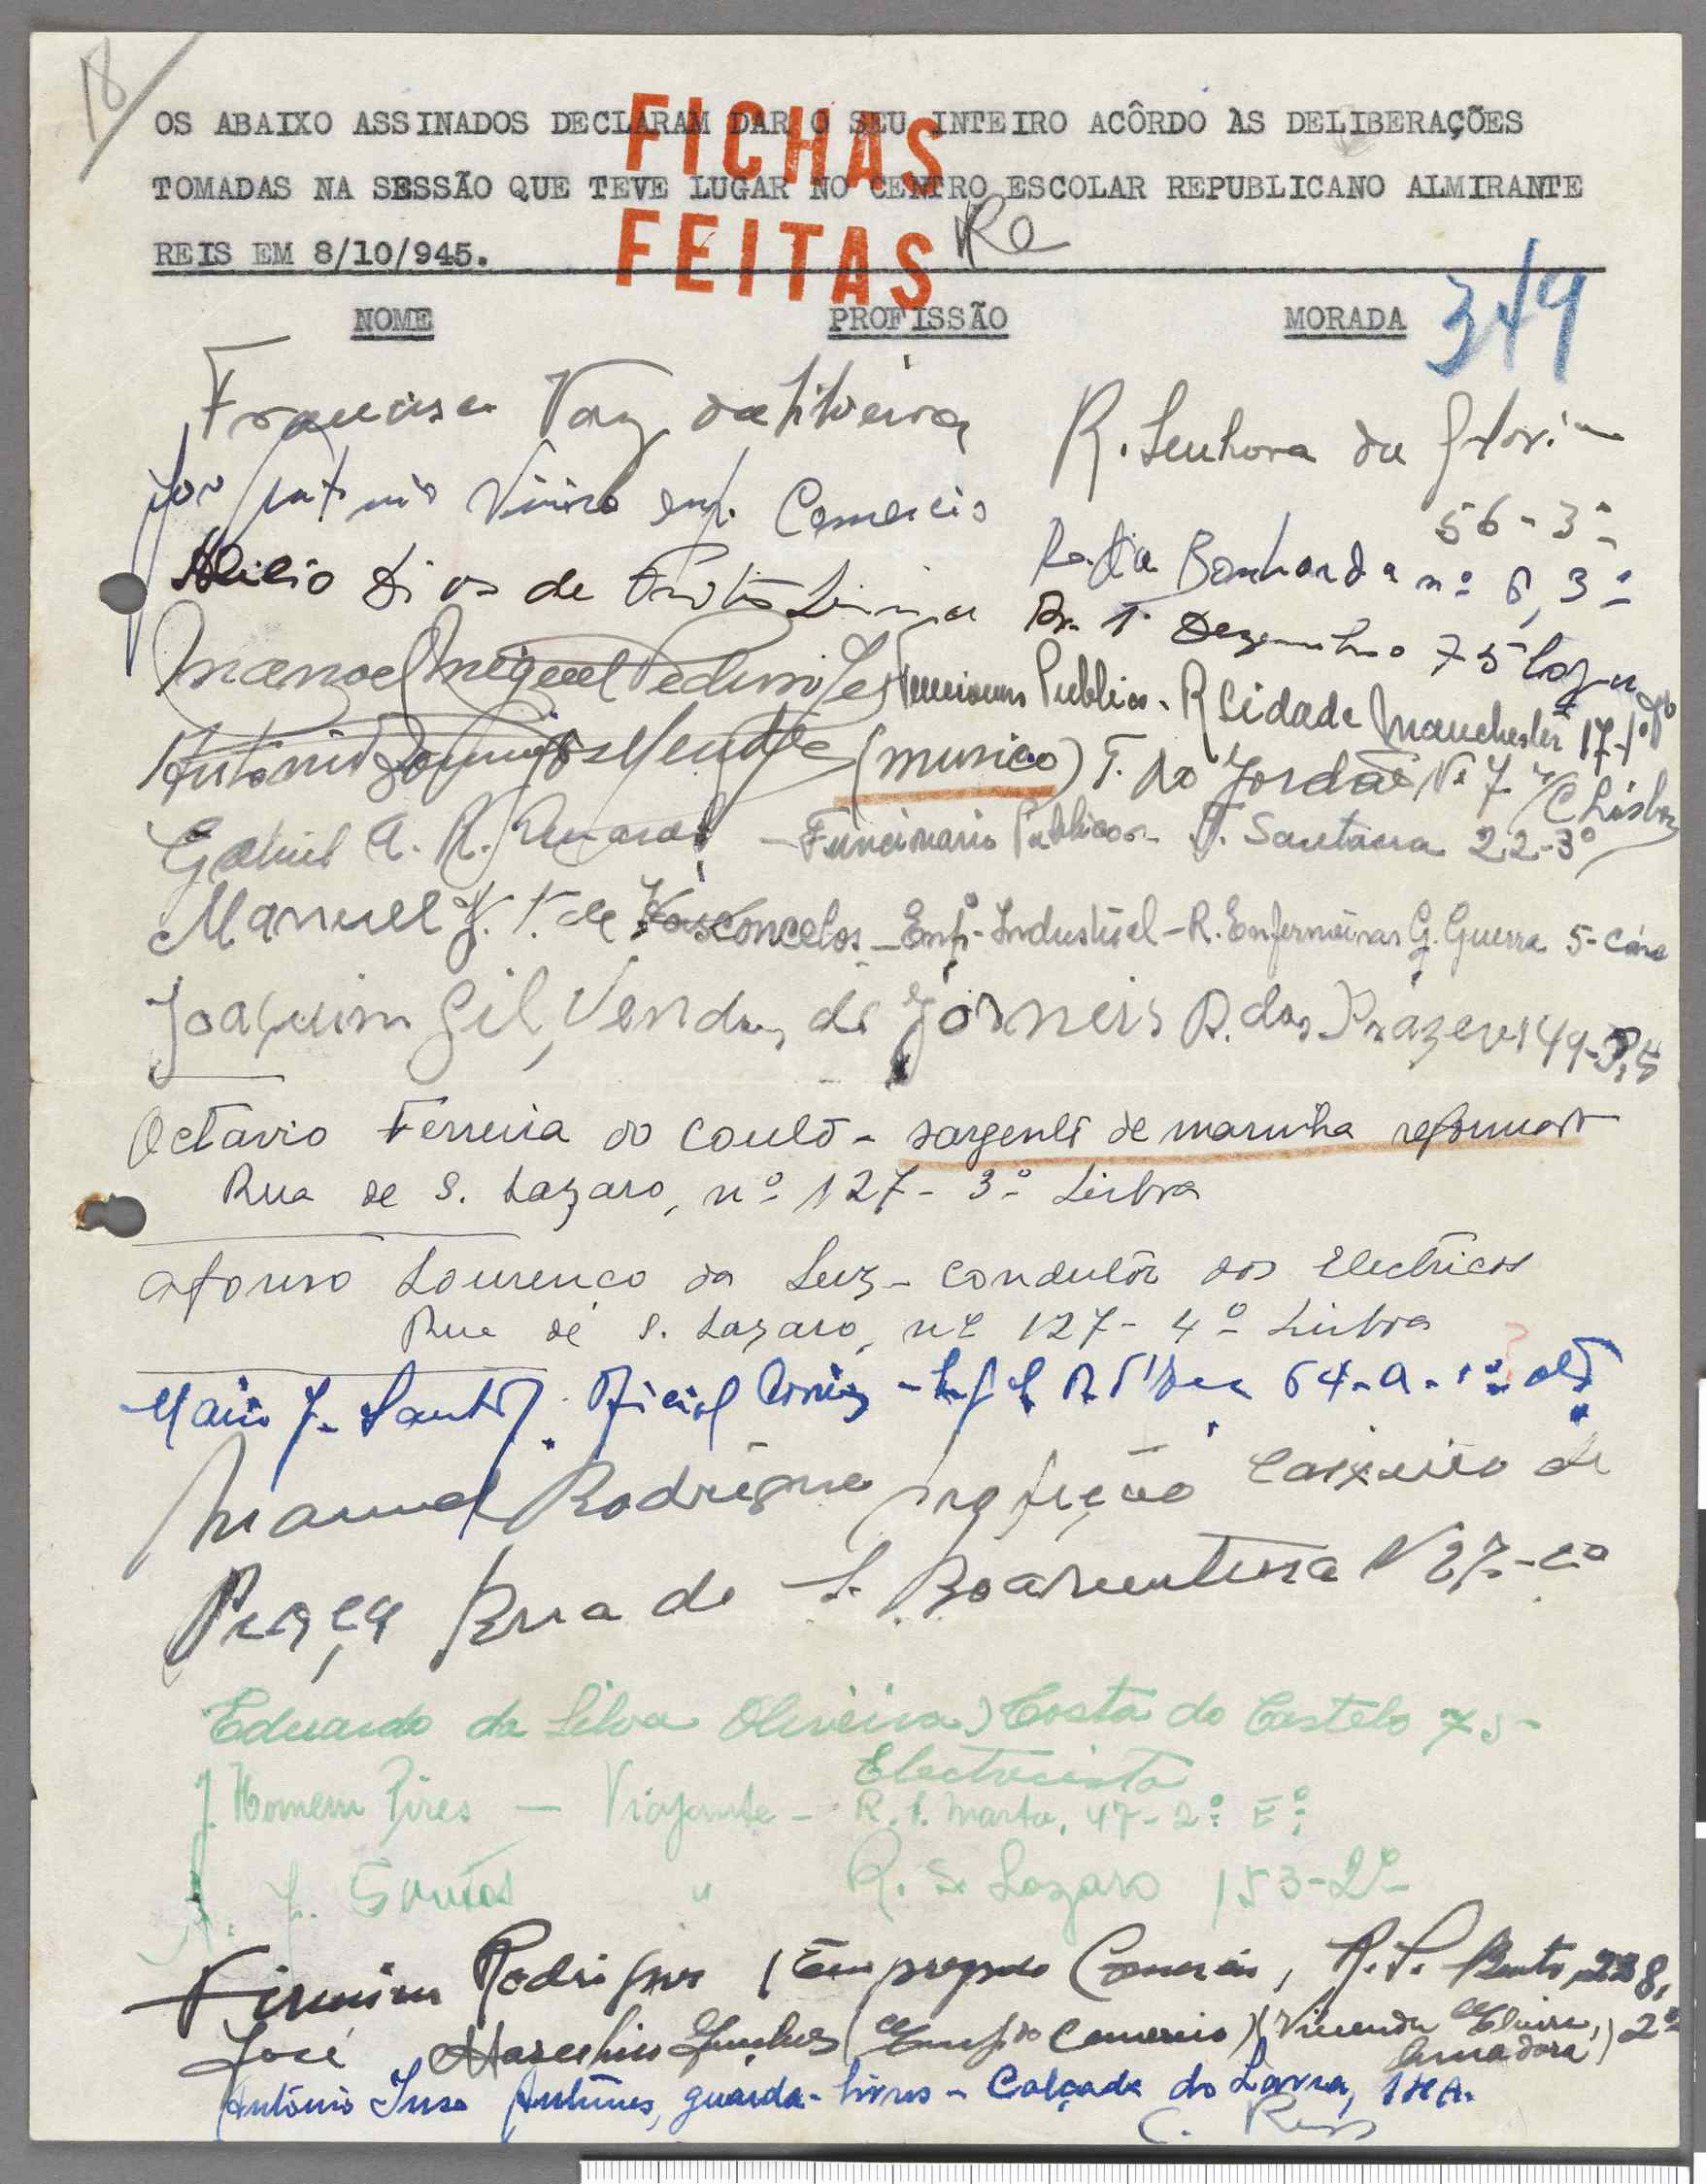 18
OS ABAIXO ASSINADOS DECLARAM DAR O SEU INTEIRO ACÔRDO ÀS DELIBERAÇÕES
TOMADAS NA SESSÃO QUE TEVE LUGAR NO CENTRO ESCOLAR REPUBLICANO ALMIRANTE
REIS EM 8/10/945.
FICHAS
FEITAS
NOME PROFISSÃO MORADA
349
Francisco Vaz da Silveira R. Senhora da Gloria
56-3º
emp. Comercio Bombarda nº 6, 3º
Dias de Lima 1º Dezembro 75
Manoel Miguel Publico - R Cidade Manchester 17-1º
Antonio Domingos Mendes (musico) T. do Jordão Nº 7 r/c Lisboa
Gabriel A. R. Amaral - Funcionario Publico - Santana 22-3º
Manuel J. T. de Vasconcelos - Empº Industrial - R. Enfermeiras G. Guerra 5-cave
Joaquim Gil, Vendor de Jorneis R. dos Prazeres 49-
Octavio Ferreira do Couto - sargento de marinha reformado
Rua de S. Lazaro, nº 127-3º Lisboa
Afonso Lourenco da Luz - condutôr dos Electricos
Rua de S. Lazaro, nº 127-4º Lisboa
Mario J. Santos 64-A-1º
Manuel Rodrigues profição Caixeiro de
Praça Rua de S. Boaventura N 27-
Eduardo da Silva Oliveira) Costa do Castelo 75-
Electricista
J. Homem Pires - Viajante - R. S. Marta, 47-2º Eº
J. Santos " R. S. Lazaro 153-2º
Firmino Rodrigues (Empregado Comercio, R. S. Bento, 228,
José Marcelino (Empdo Comercio) (Vivenda Elvira, 2º
Amadora)
António Antunes, guarda-livros - Calçada do Lavra, 1
C. Reis